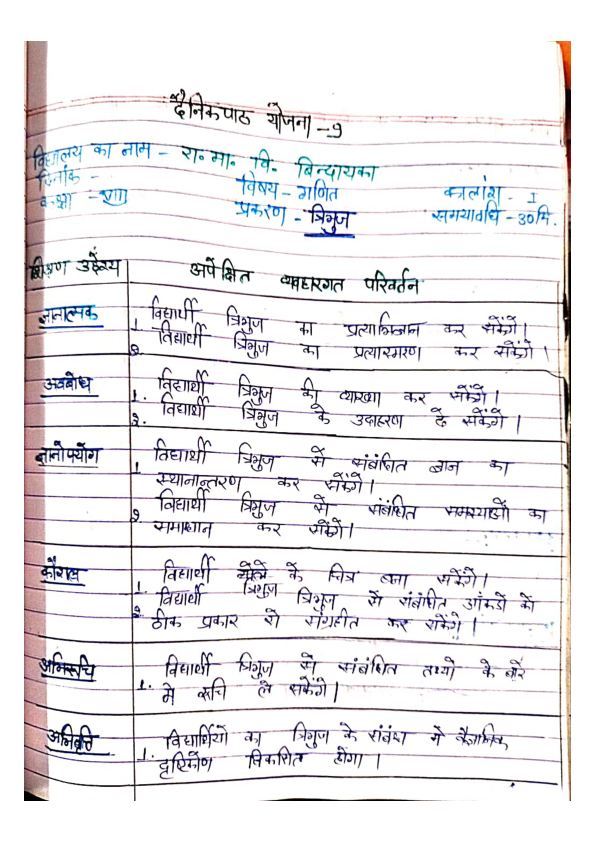 दैनिक पाठ योजना - 9
विद्यालय का नाम - रा. मा. वि. बिन्दायका
दिनांक -
विषय - गणित
कालांश - I
कक्षा - VIII
प्रकरण - त्रिभुज
समयावधि - 30 मि.
शिक्षण उद्देश्य
अपेक्षित व्यवहारगत परिवर्तन
ज्ञानात्मक
1. विद्यार्थी त्रिभुज का प्रत्याभिज्ञान कर सकेंगे।
2. विद्यार्थी त्रिभुज का प्रत्यास्मरण कर सकेंगे।
अवबोध
1. विद्यार्थी त्रिभुज की व्याख्या कर सकेंगे।
2. विद्यार्थी त्रिभुज के उदाहरण दे सकेंगे।
ज्ञानोपयोग
1. विद्यार्थी त्रिभुज से संबंधित ज्ञान का
स्थानान्तरण कर सकेंगे।
2. विद्यार्थी त्रिभुज से संबंधित समस्याओं का
समाधान कर सकेंगे।
कौशल
1. विद्यार्थी त्रिभुज के चित्र बना सकेंगे।
2. विद्यार्थी त्रिभुज से संबंधित आँकडों को
ठीक प्रकार से संग्रहीत कर सकेंगे।
अभिरूचि
1. विद्यार्थी त्रिभुज से संबंधित तथ्यो के बारे
मे रूचि ले सकेंगे।
अभिवृत्ति
1. विद्यार्थियों का त्रिभुज के संबंध मे वैज्ञानिक
दृष्टिकोण विकसित होगा।